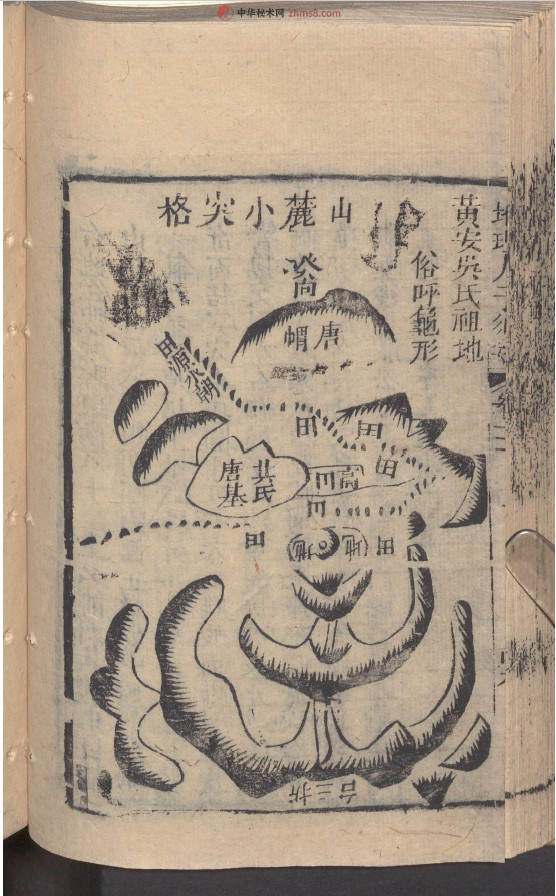 中华秘术网 zhms8.com
黃安吳氏祖地
俗呼龜形
山麓小突格
癸向
唐帽
田源水朝
田
田
田
吳氏
唐基
高田
田
田
地
地
田
台三折